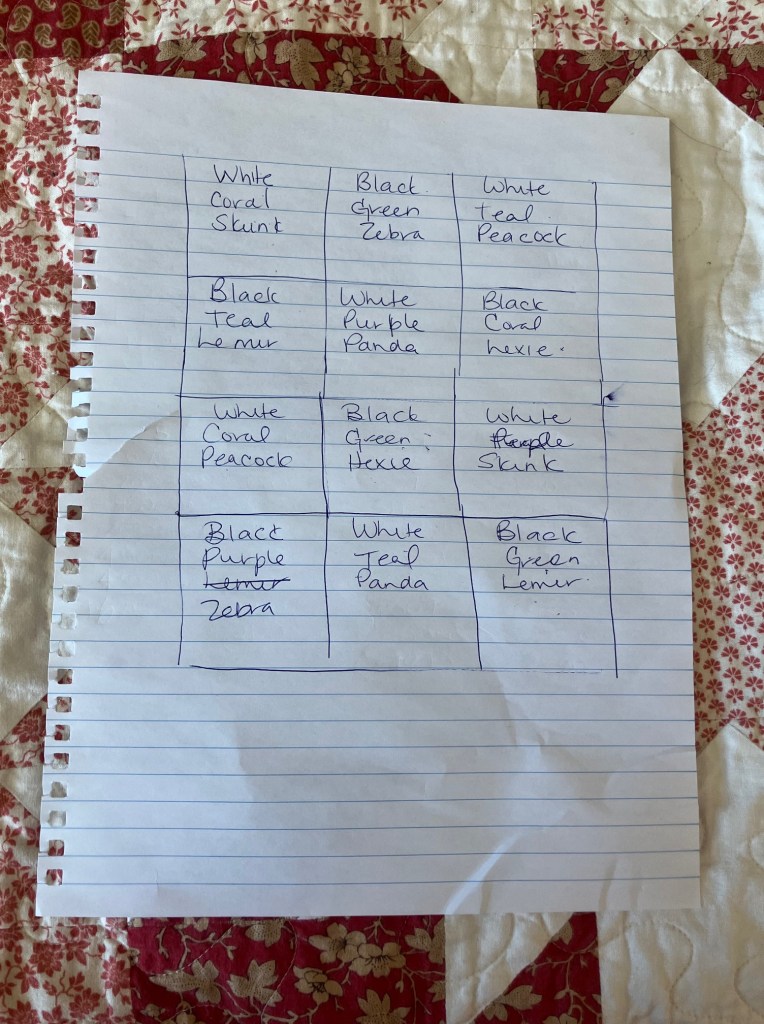 White
Coral
Skunk
Black
Green
Zebra
White
Teal
Peacock
Black
Teal
Lemur
White
Purple
Panda
Black
Coral
Hexie
White
Coral
Peacock
Black
Green
Hexie
White
Purple
Skunk
Black
Purple
Lemur
Zebra
White
Teal
Panda
Black
Green
Lemur